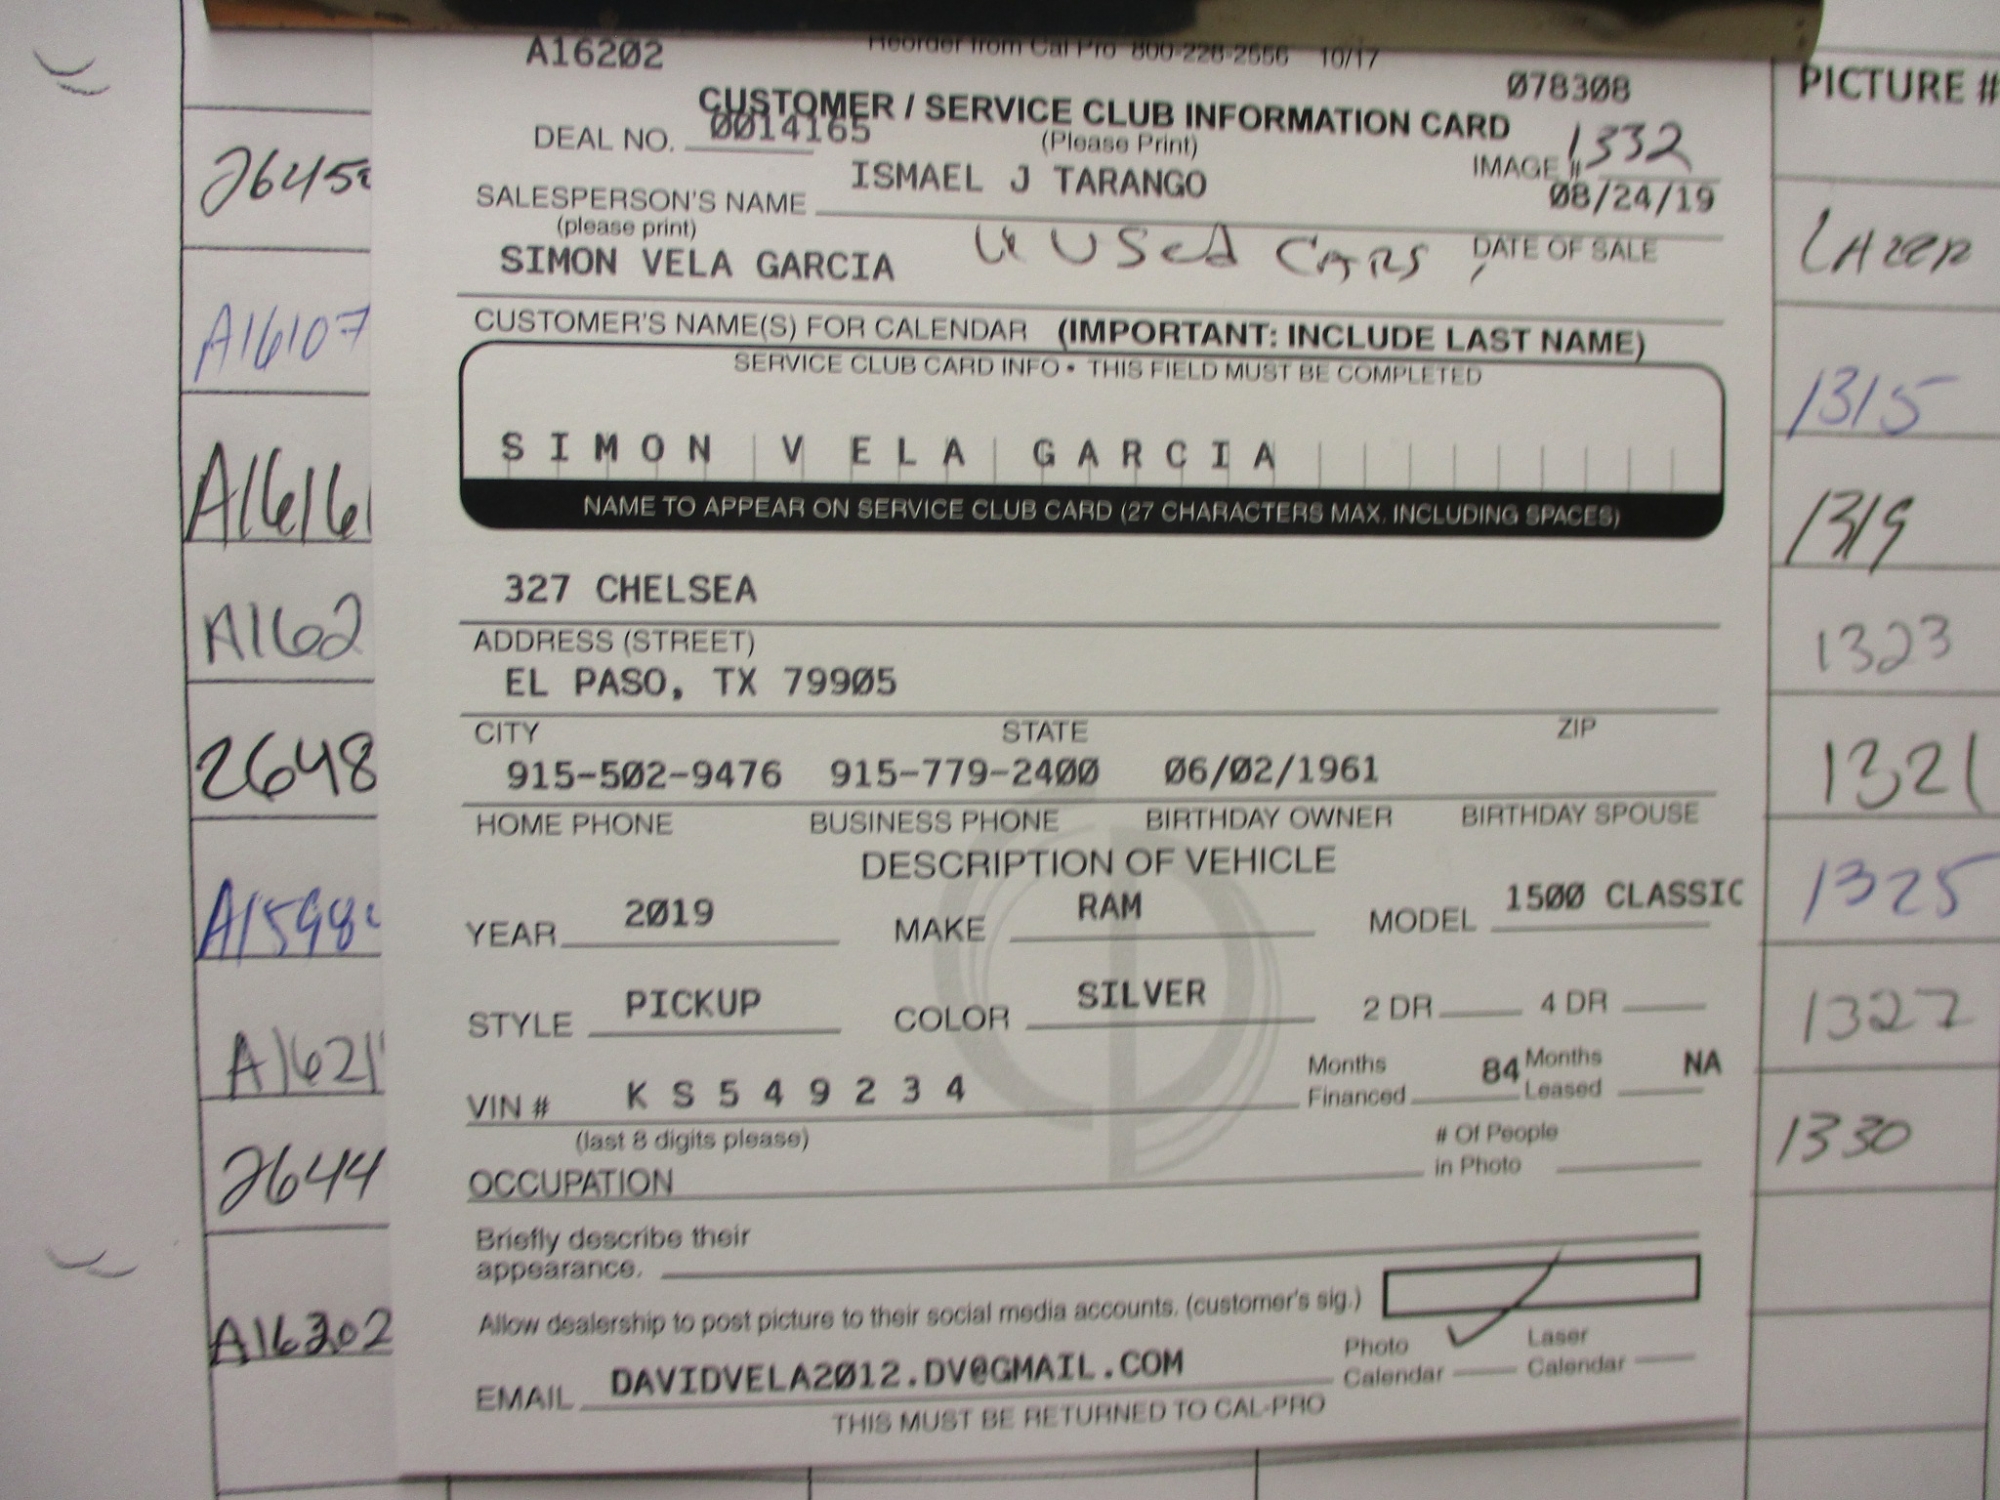 A16202
Reorder from Cal Pro 800-228-2556 10/17
078308
CUSTOMER / SERVICE CLUB INFORMATION CARD
DEAL NO. 0014165
(Please Print)
IMAGE # 1332
SALESPERSON'S NAME ISMAEL J TARANGO
08/24/19
(please print)
DATE OF SALE
SIMON VELA GARCIA
USed CARS
CUSTOMER'S NAME(S) FOR CALENDAR (IMPORTANT: INCLUDE LAST NAME)
SERVICE CLUB CARD INFO • THIS FIELD MUST BE COMPLETED
SIMON VELA GARCIA
NAME TO APPEAR ON SERVICE CLUB CARD (27 CHARACTERS MAX. INCLUDING SPACES)
327 CHELSEA
ADDRESS (STREET)
EL PASO, TX 79905
CITY STATE ZIP
915-502-9476 915-779-2400 06/02/1961
HOME PHONE BUSINESS PHONE BIRTHDAY OWNER BIRTHDAY SPOUSE
DESCRIPTION OF VEHICLE
YEAR 2019 MAKE RAM MODEL 1500 CLASSIC
STYLE PICKUP COLOR SILVER 2 DR 4 DR
VIN # KS549234 Months Financed 84 Months Leased NA
(last 8 digits please)
OCCUPATION # Of People in Photo
Briefly describe their
appearance.
Allow dealership to post picture to their social media accounts. (customer's sig.)
Photo Calendar Laser Calendar
EMAIL DAVIDVELA2012.DV@GMAIL.COM
THIS MUST BE RETURNED TO CAL-PRO
A16107
A1616
A162
2648
A1621
2644
A16202
PICTURE #
LAZER
1315
1319
1323
1321
1325
1327
1330